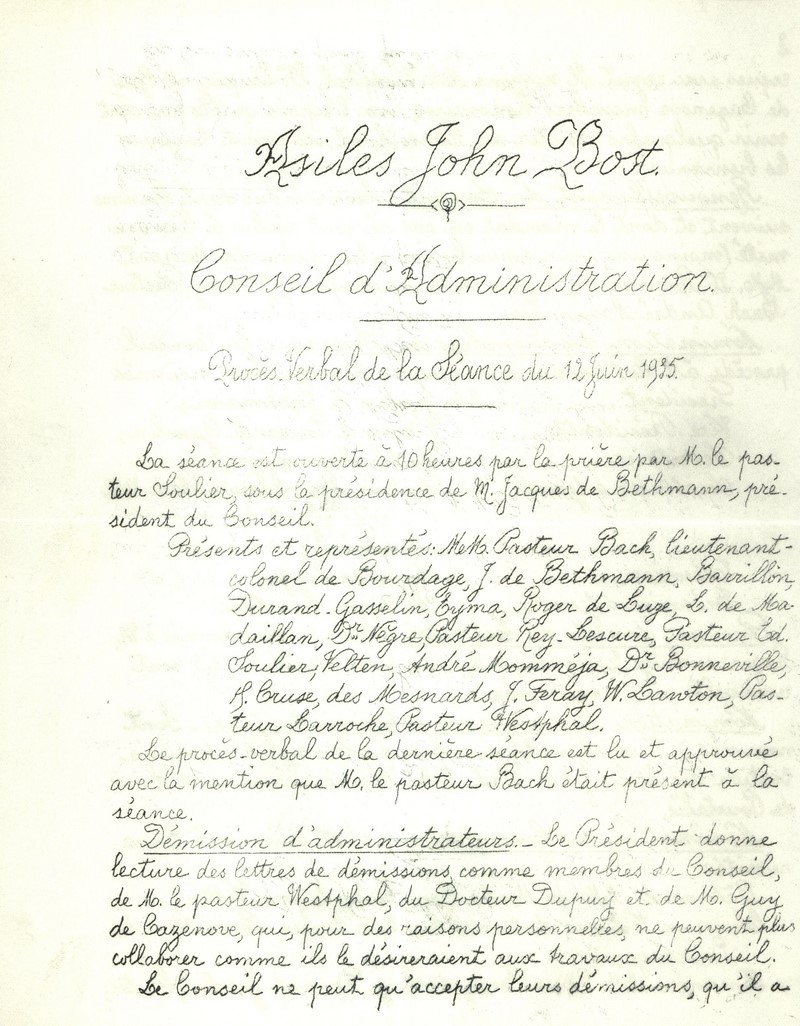 Asiles John Bost.
Conseil d'Administration.
Procès-Verbal de la Séance du 12 Juin 1935.
La séance est ouverte à 10 heures par la prière par M. le pas-
teur Soulier, sous la présidence de M. Jacques de Bethmann, pré-
sident du Conseil.
Présents et représentés: MeM. Pasteur Bach, lieutenant-
colonel de Bourdage, J. de Bethmann, Barrillon,
Durand-Gasselin, Eyma, Roger de Luze, L. de Ma-
daillan, Dr Nègre, Pasteur Rey-Lescure, Pasteur Ed.
Soulier, Velten, André Momméja, Dr Bonneville,
H. Cruse, des Mesnards, J. Feray, W. Lawton, Pas-
teur Larroche, Pasteur Westphal.
Le procès-verbal de la dernière séance est lu et approuvé
avec la mention que M. le pasteur Bach était présent à la
séance.
Démission d'administrateurs. - Le Président donne
lecture des lettres de démissions, comme membres du Conseil,
de M. le pasteur Westphal, du Docteur Dupuy et de M. Guy
de Cazenove, qui, pour des raisons personnelles, ne peuvent plus
collaborer comme ils le désireraient aux travaux du Conseil.
Le Conseil ne peut qu'accepter leurs démissions, qu'il a